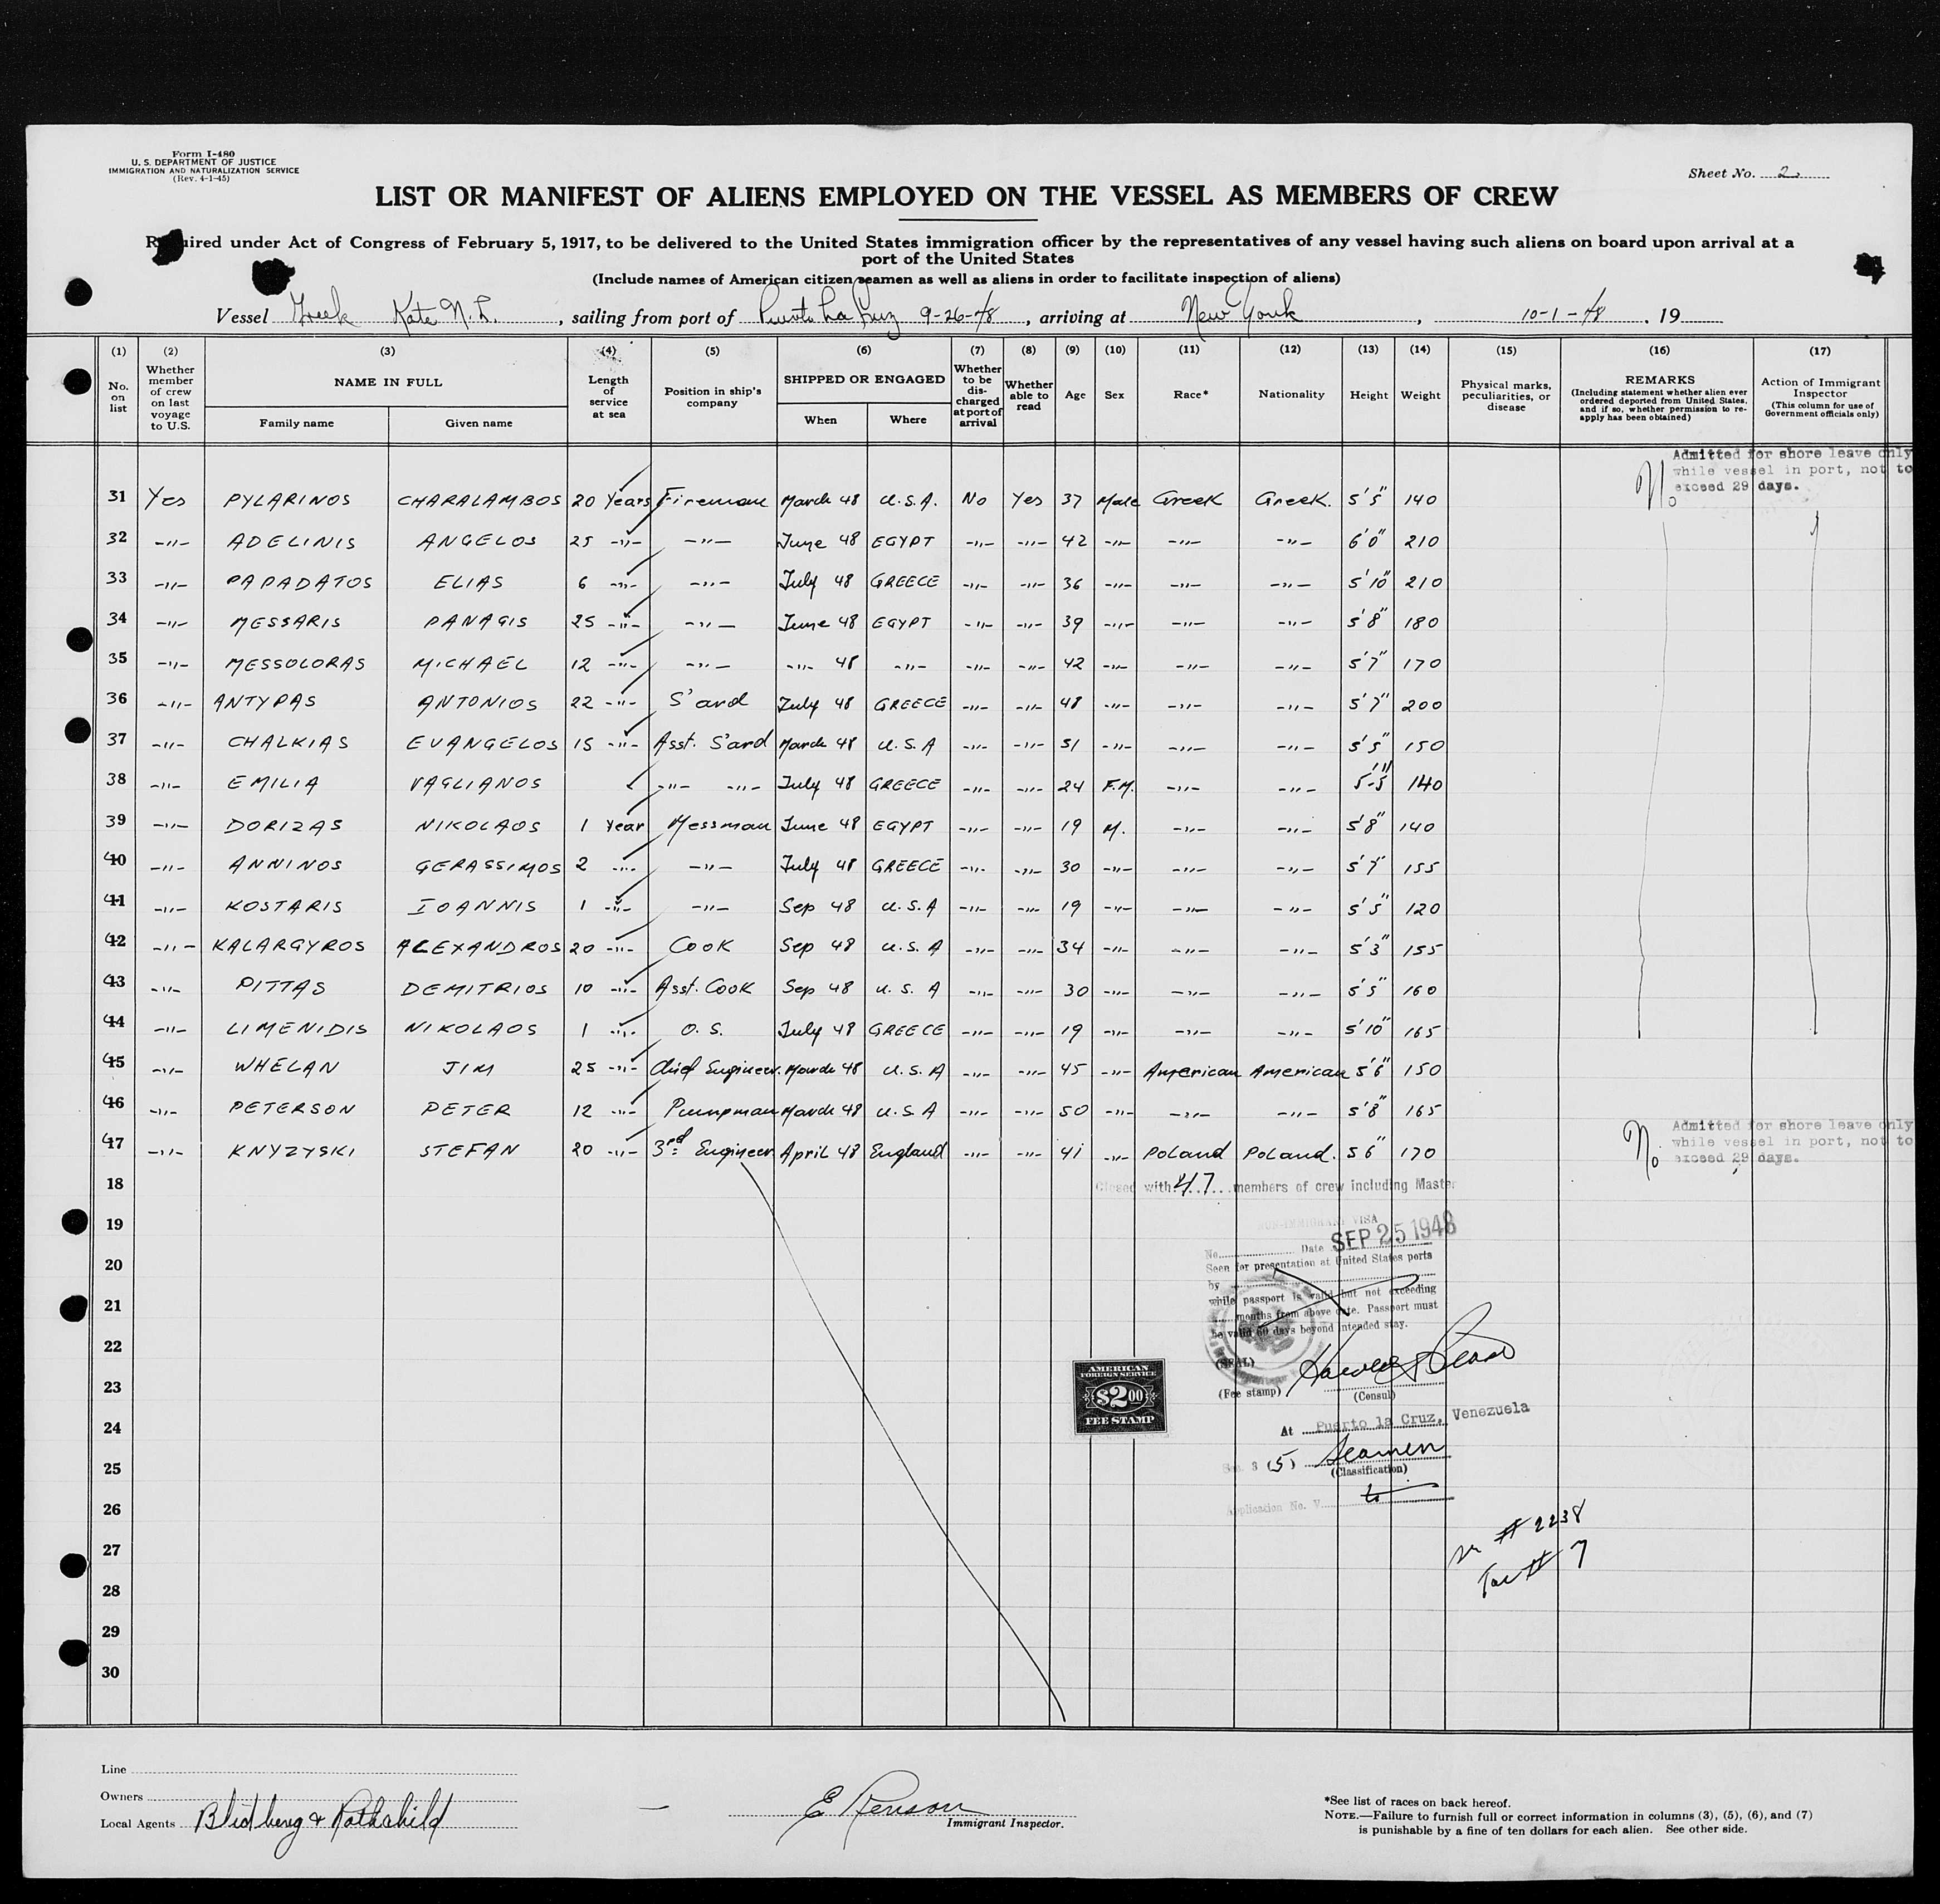 Form I-480
U. S. DEPARTMENT OF JUSTICE
IMMIGRATION AND NATURALIZATION SERVICE
(Rev. 4-1-45)
Sheet No. 2
LIST OR MANIFEST OF ALIENS EMPLOYED ON THE VESSEL AS MEMBERS OF CREW
Required under Act of Congress of February 5, 1917, to be delivered to the United States immigration officer by the representatives of any vessel having such aliens on board upon arrival at a
port of the United States
(Include names of American citizen seamen as well as aliens in order to facilitate inspection of aliens)
Vessel Greek Kate N. L. , sailing from port of Puerto La Cruz 9-26-48 , arriving at New York , 10-1-48 , 19
(1) (2) (3) (4) (5) (6) (7) (8) (9) (10) (11) (12) (13) (14) (15) (16) (17)
No. on list
Whether member of crew on last voyage to U.S.
NAME IN FULL
Family name Given name
Length of service at sea
Position in ship's company
SHIPPED OR ENGAGED
When Where
Whether to be discharged at port of arrival
Whether able to read
Age
Sex
Race*
Nationality
Height
Weight
Physical marks, peculiarities, or disease
REMARKS
(Including statement whether alien ever ordered deported from United States, and if so, whether permission to re-apply has been obtained)
Action of Immigrant Inspector
(This column for use of Government officials only)
Admitted for shore leave only
while vessel in port, not to
exceed 29 days.
31 Yes PYLARINOS CHARALAMBOS 20 Years Fireman March 48 U.S.A. No Yes 37 Male Greek Greek. 5'5" 140 No
32 -"- ADELINIS ANGELOS 25 -"- -"- June 48 EGYPT -"- -"- 42 -"- -"- -"- 6'0" 210
33 -"- PAPADATOS ELIAS 6 -"- -"- July 48 GREECE -"- -"- 36 -"- -"- -"- 5'10" 210
34 -"- MESSARIS PANAGIS 25 -"- -"- June 48 EGYPT -"- -"- 39 -"- -"- -"- 5'8" 180
35 -"- MESSOLORAS MICHAEL 12 -"- -"- -"- 48 -"- -"- -"- 42 -"- -"- -"- 5'7" 170
36 -"- ANTYPAS ANTONIOS 22 -"- S'ard July 48 GREECE -"- -"- 48 -"- -"- -"- 5'7" 200
37 -"- CHALKIAS EVANGELOS 15 -"- Asst. S'ard March 48 U.S.A -"- -"- 51 -"- -"- -"- 5'5" 150
38 -"- EMILIA VAGLIANOS -"- -"- July 48 GREECE -"- -"- 24 F.M. -"- -"- 5'5" 140
39 -"- DORIZAS NIKOLAOS 1 Year Messman June 48 EGYPT -"- -"- 19 M. -"- -"- 5'8" 140
40 -"- ANNINOS GERASSIMOS 2 -"- -"- July 48 GREECE -"- -"- 30 -"- -"- -"- 5'7" 155
41 -"- KOSTARIS IOANNIS 1 -"- -"- Sep 48 U.S.A -"- -"- 19 -"- -"- -"- 5'5" 120
42 -"- KALARGYROS ALEXANDROS 20 -"- Cook Sep 48 U.S.A -"- -"- 34 -"- -"- -"- 5'3" 155
43 -"- PITTAS DEMITRIOS 10 -"- Asst. Cook Sep 48 U.S.A -"- -"- 30 -"- -"- -"- 5'5" 160
44 -"- LIMENIDIS NIKOLAOS 1 -"- O.S. July 48 GREECE -"- -"- 19 -"- -"- -"- 5'10" 165
45 -"- WHELAN JIM 25 -"- Chief Engineer. March 48 U.S.A -"- -"- 45 -"- American American 5'6" 150
46 -"- PETERSON PETER 12 -"- Pumpman March 48 U.S.A -"- -"- 50 -"- -"- -"- 5'8" 165
Admitted for shore leave only
while vessel in port, not to
exceed 29 days.
47 -"- KNYZYSKI STEFAN 20 -"- 3rd Engineer April 48 England -"- -"- 41 -"- Poland Poland. 5 6" 170 No
18
Closed with 47 members of crew including Master
19
NON-IMMIGRANT VISA
No. Date SEP 25 1948
20
Seen for presentation at United States ports
by
21
while passport is valid but not exceeding
months from above date. Passport must
be valid 60 days beyond intended stay.
22
(SEAL)
23
(Fee stamp) (Consul)
AMERICAN
FOREIGN SERVICE
$2.00
FEE STAMP
24
At Puerto la Cruz, Venezuela
25
Sec. 3 (5) Seamen
(Classification)
26
Application No. V
# 2238
27
# 7
28
29
30
Line
Owners
Local Agents Blidberg & Rothchild
E Renson
Immigrant Inspector.
*See list of races on back hereof.
NOTE.—Failure to furnish full or correct information in columns (3), (5), (6), and (7)
is punishable by a fine of ten dollars for each alien. See other side.